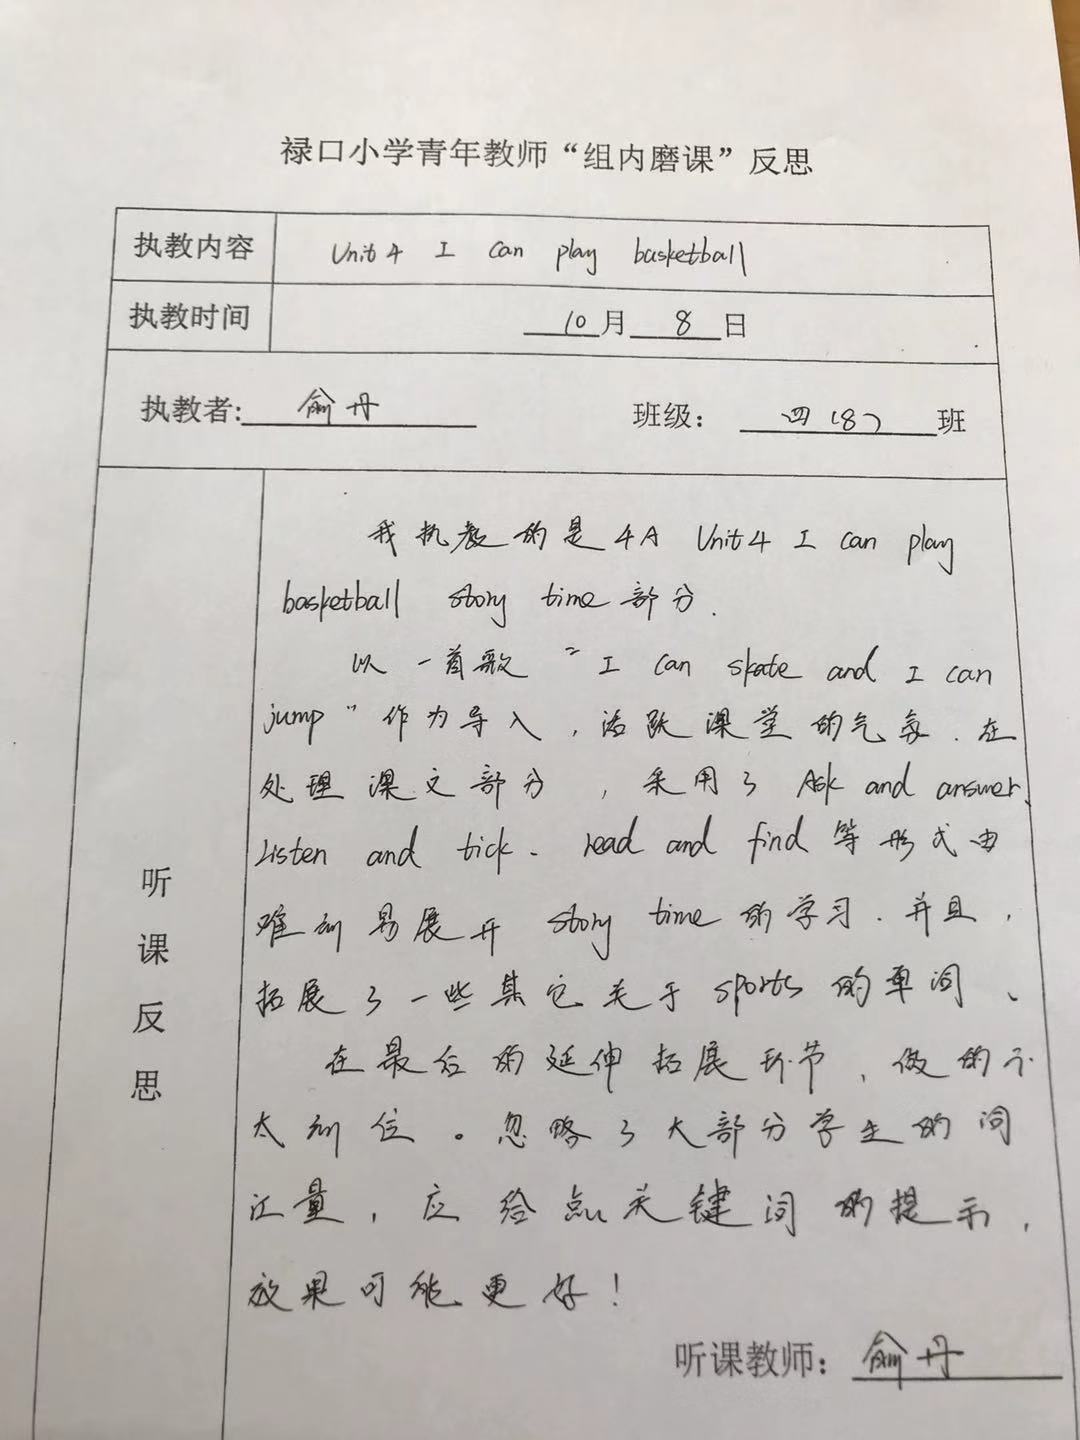 禄口小学青年教师“组内磨课”反思
执教内容 Unit 4 I can play basketball
执教时间 10月 8日
执教者: 俞丹 班级: 四(8)班
我执教的是4A Unit 4 I can play
basketball story time 部分.
以一首歌 “I can skate and I can
jump” 作为导入,活跃课堂的气氛.在
处理课文部分,采用了 Ask and answer、
Listen and tick、read and find 等形式由
难到易展开 story time 的学习.并且,
拓展了一些其它关于 sports 的单词、
在最后的延伸拓展环节,做的不
太到位。忽略了大部分学生的词
汇量,应给点关键词的提示,
效果可能更好!
听课反思
听课教师: 俞丹